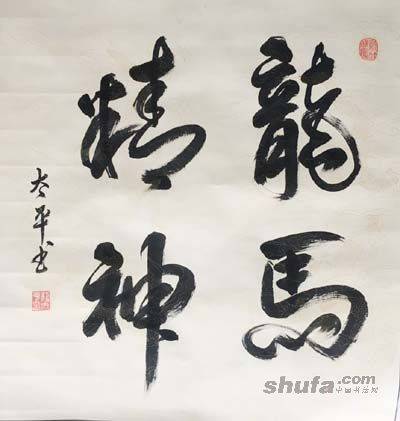 龍馬
精神
太平书
shufa.com
中国书法网